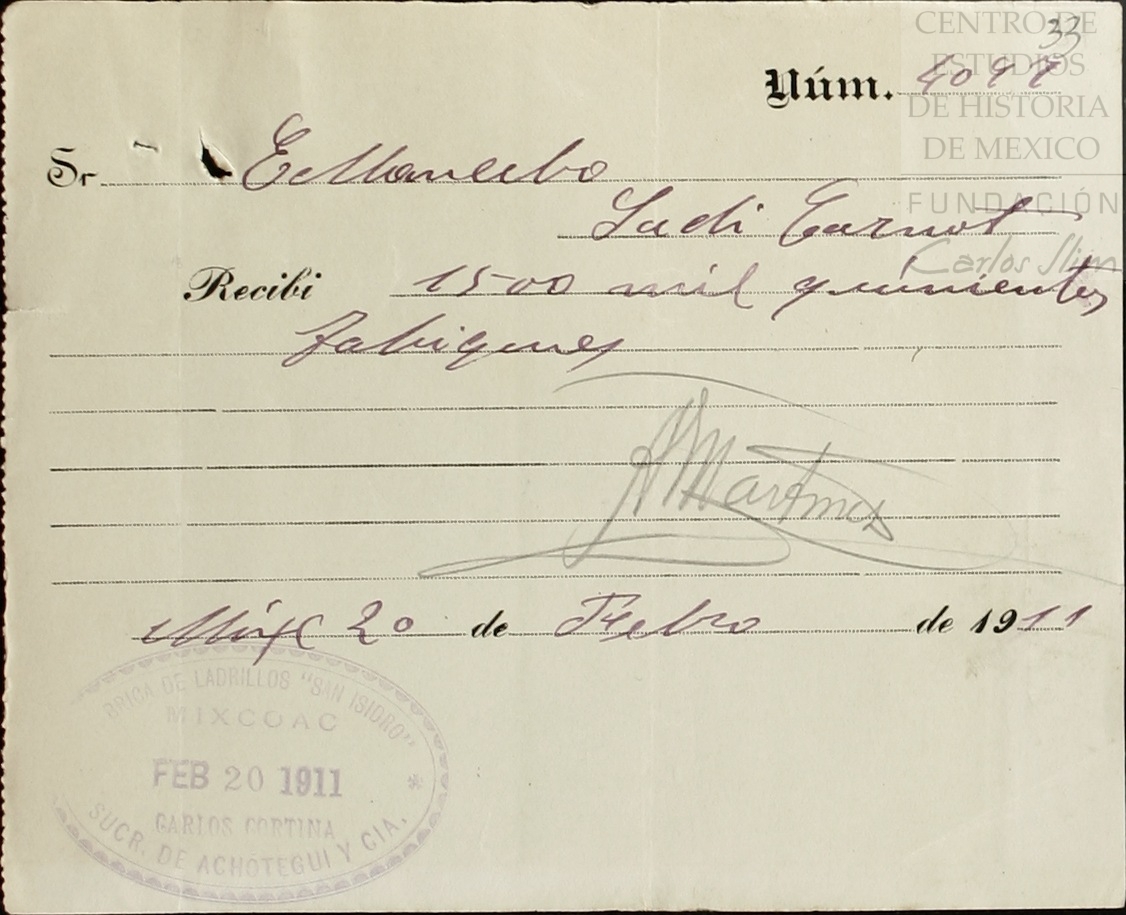 33
CENTRO DE
ESTUDIOS
DE HISTORIA
DE MEXICO
FUNDACIÓN
Carlos Slim
Núm. 4097
Sr. E Mancebo
Sadi Carnot
Recibi 1500 mil quinientos
Tabiques
Martinez
Mixc 20 de Febro de 1911
BRICA DE LADRILLOS "SAN ISIDRO"
MIXCOAC
FEB 20 1911
CARLOS CORTINA
SUCR. DE ACHÓTEGUI Y CIA.